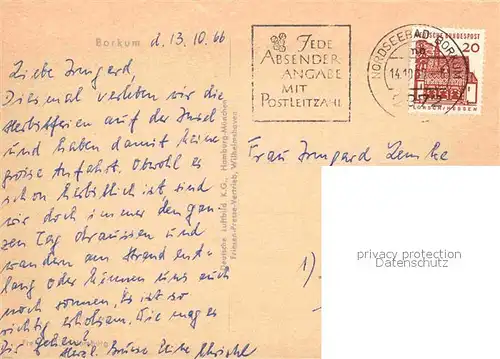 Borkum d. 13.10.66
Liebe Irmgard,
Diesmal verleben wir die
Herbstferien auf der Insel
und haben damit keine
grosse Anfahrt. Obwohl es
schon herbstlich ist, sind
wir doch immer den gan-
zen Tag draussen und
wandern am Strand ent-
lang oder können uns auch
noch sonnen. Es ist so
richtig erholsam. Wie mag es
Dir gehen?
Herzl. Grüsse Deine
Deutsche Luftbild K.G., Hamburg-München
Friesen-Presse-Vertrieb, Wilhelmshaven
JEDE
ABSENDER
ANGABE
MIT
POSTLEITZAHL
NORDSEEBAD BORKUM
14.10
DEUTSCHE BUNDESPOST
20
LORSCH/HESSEN
Frau Irmgard
1)
privacy protection
Datenschutz